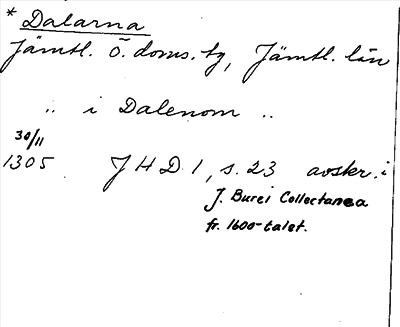 * Dalarna
Jämtl. ö. doms. tg, Jämtl. län
.. i Dalenom ..
30/11
1305 JHD 1, s. 23 avskr. i
J. Burei Collectanea
fr. 1600-talet.